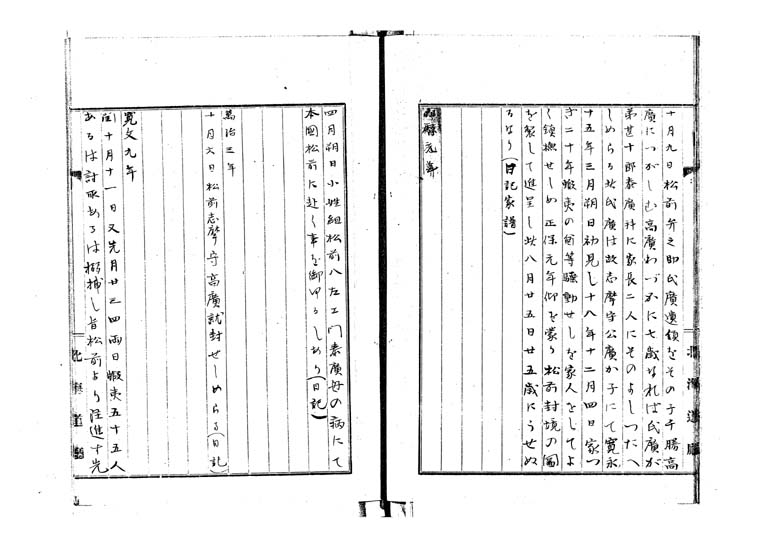 十月九日松前弁之助氏廣遺領をその子千勝高
廣につがしむ高廣わづかに七歳なれば氏廣が
弟甚十郎泰廣幷に家長二人にそのよしつたへ
しめらる此氏廣は故志摩守公廣か子にて寛永
十五年三月朔日初見し十八年十二月四日家つ
き二十年蝦夷の酋等騒動せしを家人をしてよ
く鎮撫せしめ正保元年仰を蒙り松前封境の圖
を製して進呈し此八月廿五日廿五歳にうせぬ
るなり(日記家譜)
明暦元年
北海道廳
四月朔日小姓組松前八左エ門泰廣母の病にて
本國松前に赴く事を御ゆるしあり(日記)
萬治三年
十月六日松前志摩守高廣就封せしめらる(日記)
寛文九年
閏十月十一日又先月廿三四両日蝦夷五十五人
あるは討取あるは搦捕し旨松前より注進す先
北海道廳